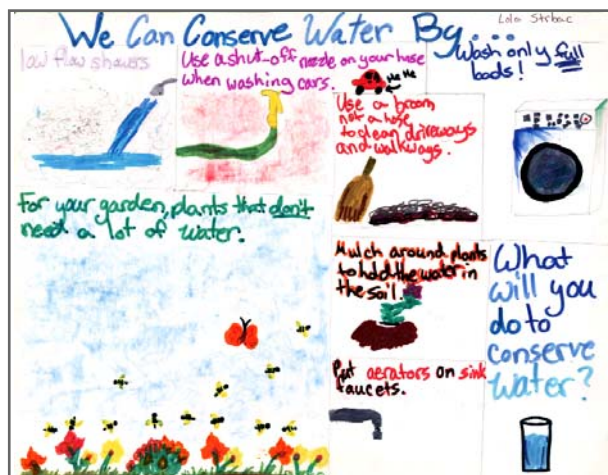 Lola Strbac
We Can Conserve Water By...
low flow showers
Use a shut-off nozzle on your hose
when washing cars.
Me Me
Wash only full
loads!
Use a broom
not a hose
to clean driveways
and walkways.
For your garden, plants that don't
need a lot of water.
Mulch around plants
to hold the water in
the soil.
Put aerators on sink
faucets.
What
will you
do to
conserve
water?